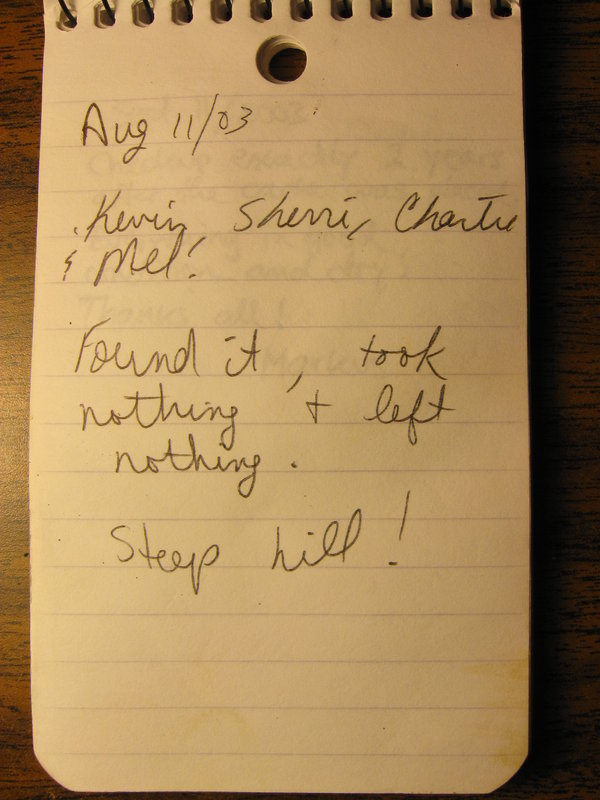 Aug 11/03
Kevin, Sherri, Charlie
& Mel!
Found it, took
nothing + left
nothing.
Steep hill!